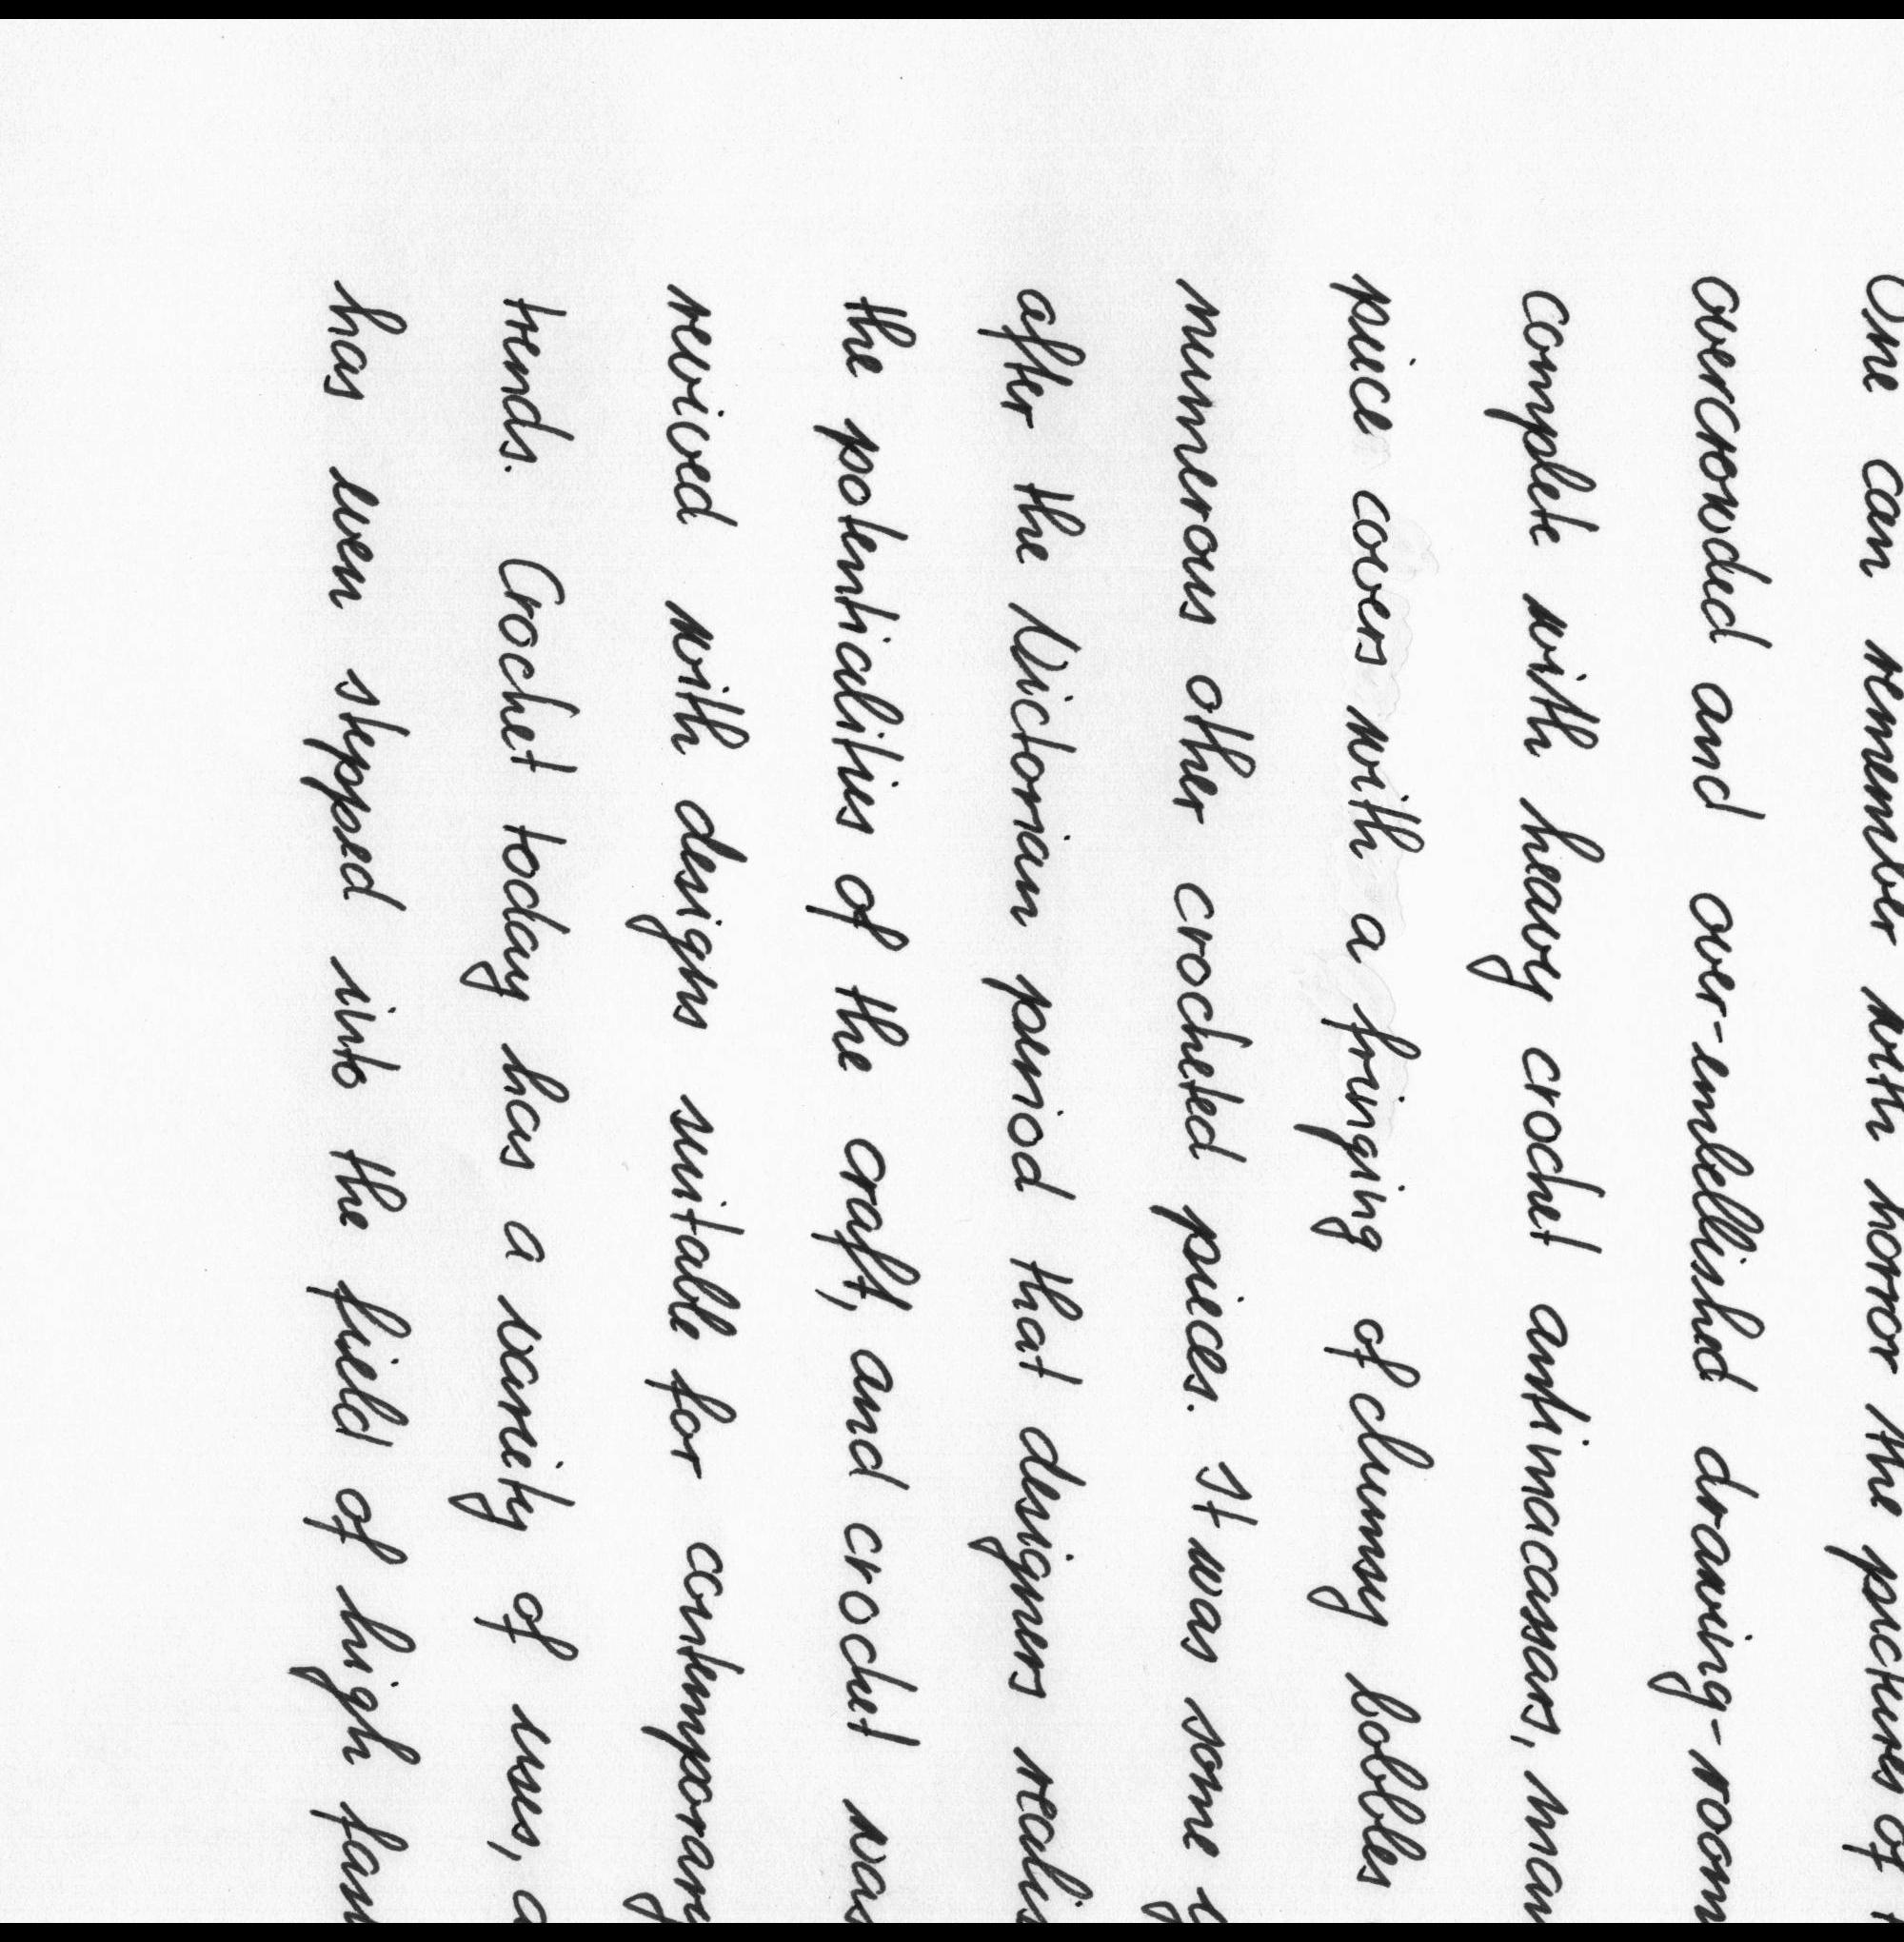 One can remember with horror the pictures of
overcrowded and over-embellished drawing-room
complete with heavy crochet antimacassars, man
piece covers with a fringing of clumsy bobbles
numerous other crocheted pieces. It was some y
after the Victorian period that designers realis
the potentialities of the craft, and crochet was
revived with designs suitable for contemporary
trends. Crochet today has a variety of uses, a
has even stepped into the field of high fas